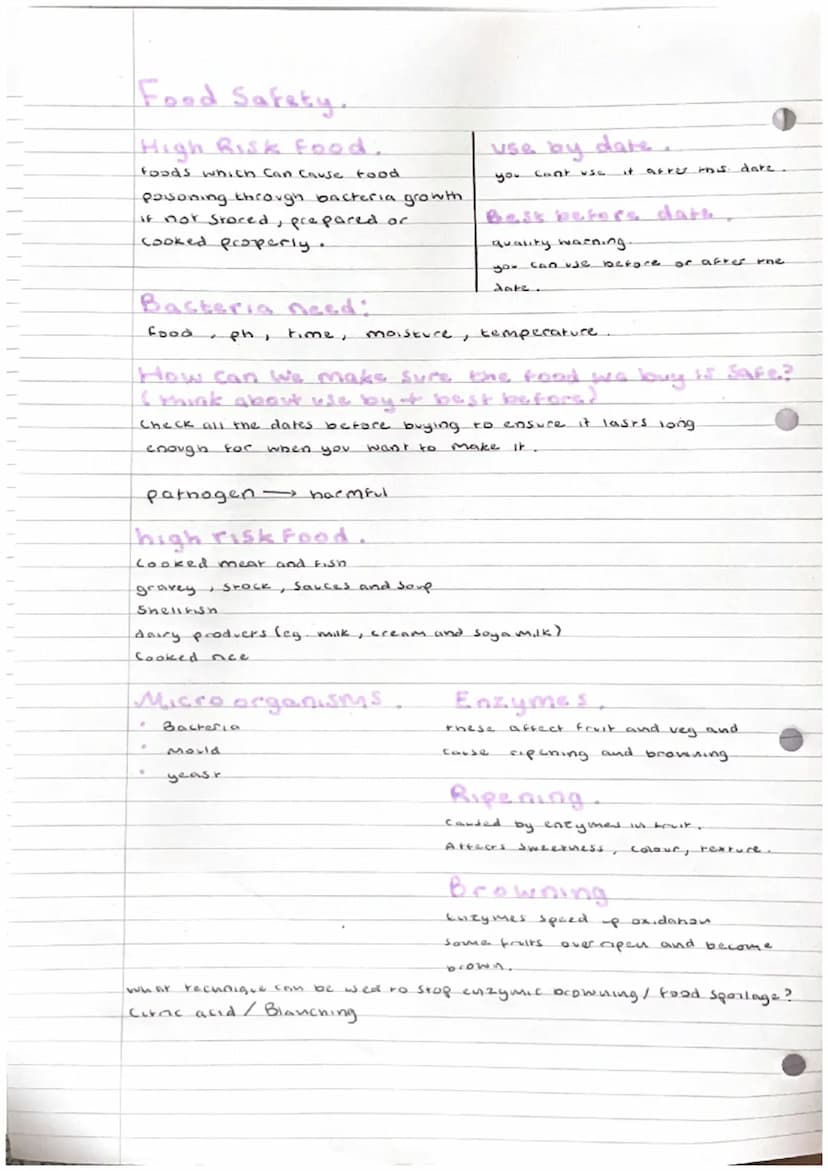 Food Safety.
High Risk Food.
foods which can cause food
poisoning through bacteria growth
if not stored, prepared or
cooked properly.
use by date.
you cant use it after this date.
Best before date.
quality warning.
you can use before or after the
date.
Bacteria need:
food, ph, time, moisture, temperature.
How can we make sure the food we buy is safe?
(think about use by + best before)
Check all the dates before buying to ensure it lasts long
enough for when you want to make it.
pathogen → harmful
high risk food.
Cooked meat and fish
gravey, stock, sauces and soup
Shellfish
dairy products (eg. milk, cream and soya milk)
Cooked rice
Micro organisms.
• Bacteria
• Mould
• yeast
Enzymes.
these affect fruit and veg and
cause ripening and browning
Ripening.
Caused by enzymes in fruit.
Affects sweetness, colour, texture.
Browning
Enzymes speed up oxidation
some fruits over ripen and become
brown.
What technique can be used to stop enzymic browning / food spoilage?
Citric acid / Blanching